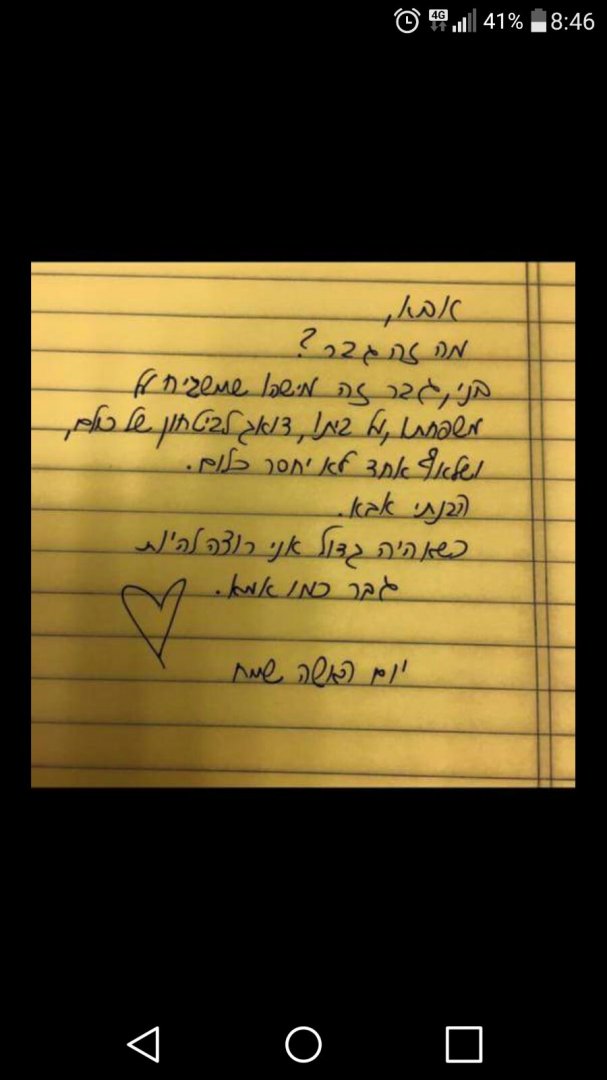 4G 41% 8:46
אבא,
מה זה גבר?
בני, גבר זה מישהו שמשגיח על
משפחתו, על ביתו, דואג לביטחון של כולם,
ושלאף אחד לא יחסר כלום.
הבנתי אבא.
כשאהיה גדול אני רוצה להיות
גבר כמו אמא.
יום האשה שמח